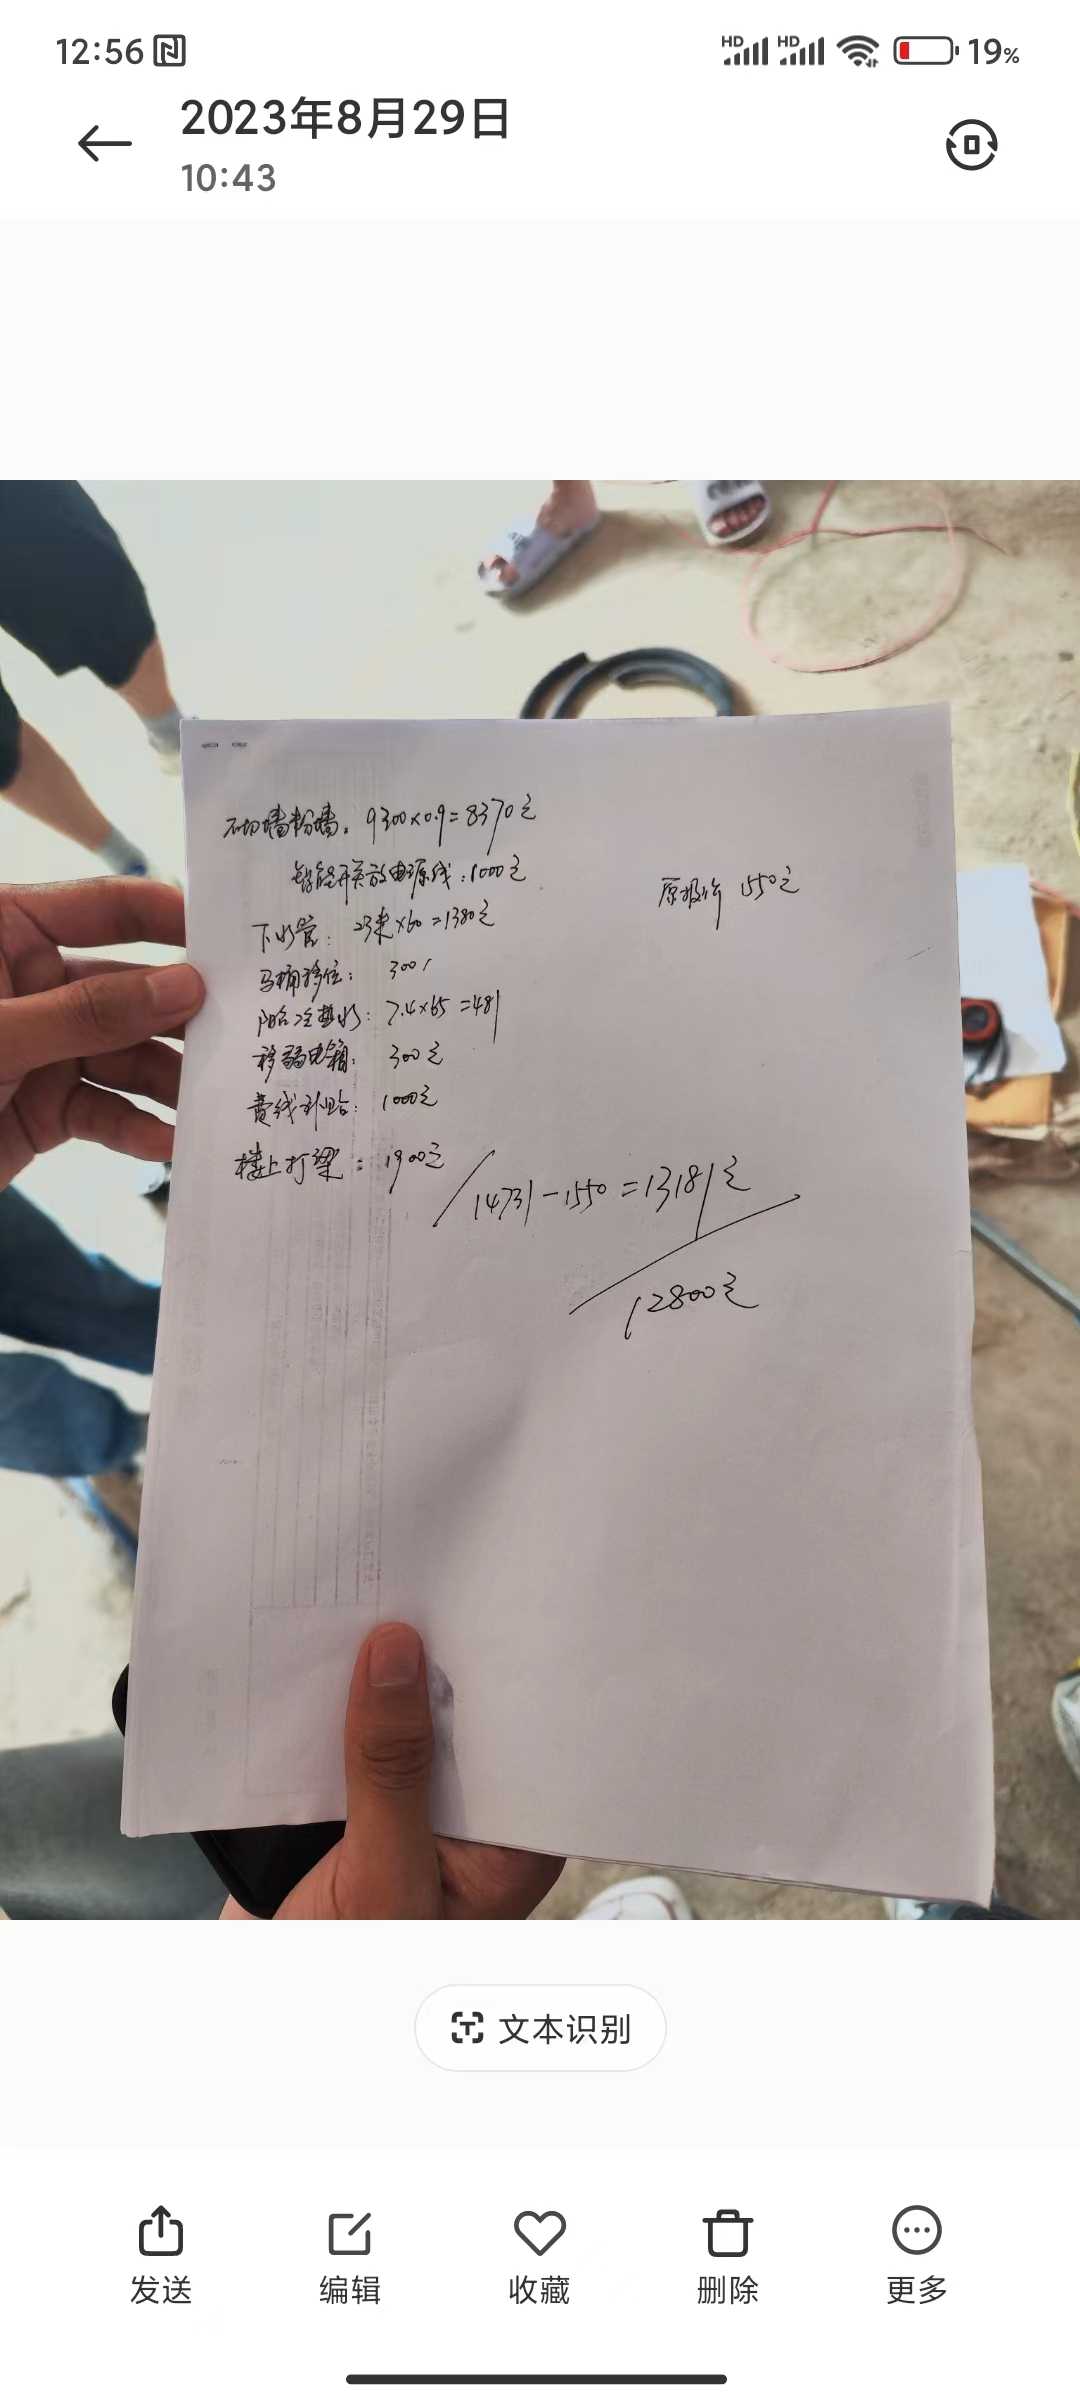 12:56
HD HD 19%
2023年8月29日
10:43
砌墙粉墙。9300×0.9=8370元
智能开关放电源线:1000元
原报价 1550元
下水管: 23米×60=1380元
马桶移位: 300/
阳台冷热水: 7.4×65=481
移弱电箱: 300元
黄线补贴: 1000元
楼上打梁: 1900元
14731-1550=13181元
12800元
文本识别
发送
编辑
收藏
删除
更多